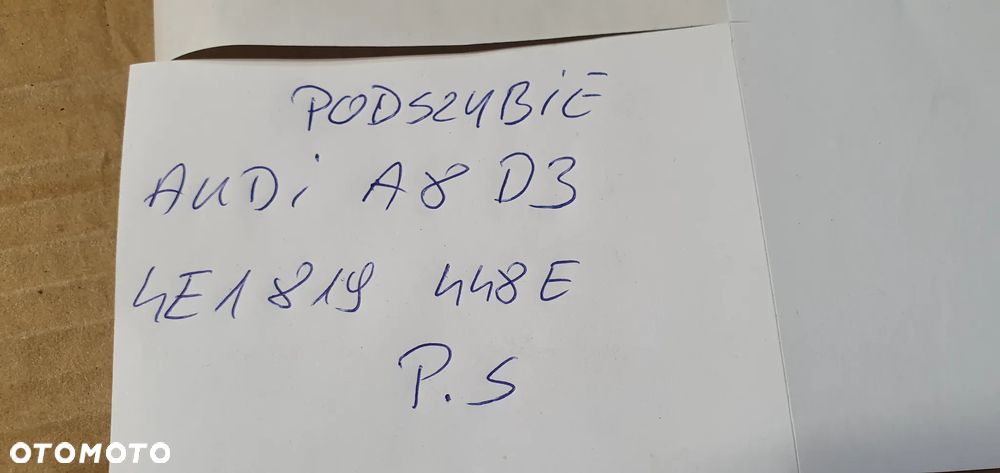 PODSZYBiE
AUDi A8 D3
4E1819 448E
P.S
OTOMOTO